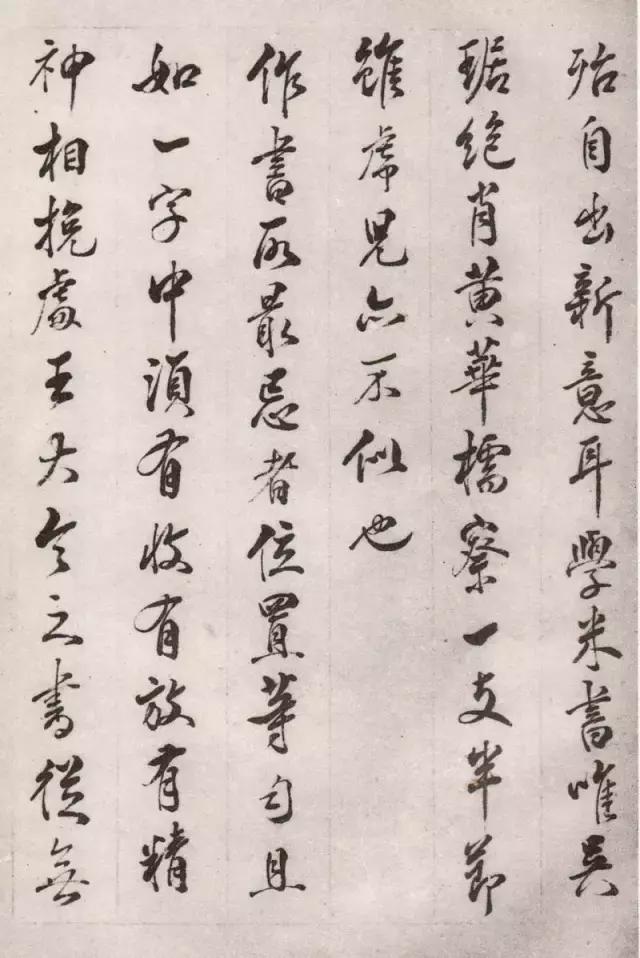 殆自出新意耳學米書唯吳
琚絕肖黃華樗寮一支半節
雖虎兒亦不似也
作書所最忌者位置等勻且
如一字中須有收有放有精
神相挽處王大令之書從無